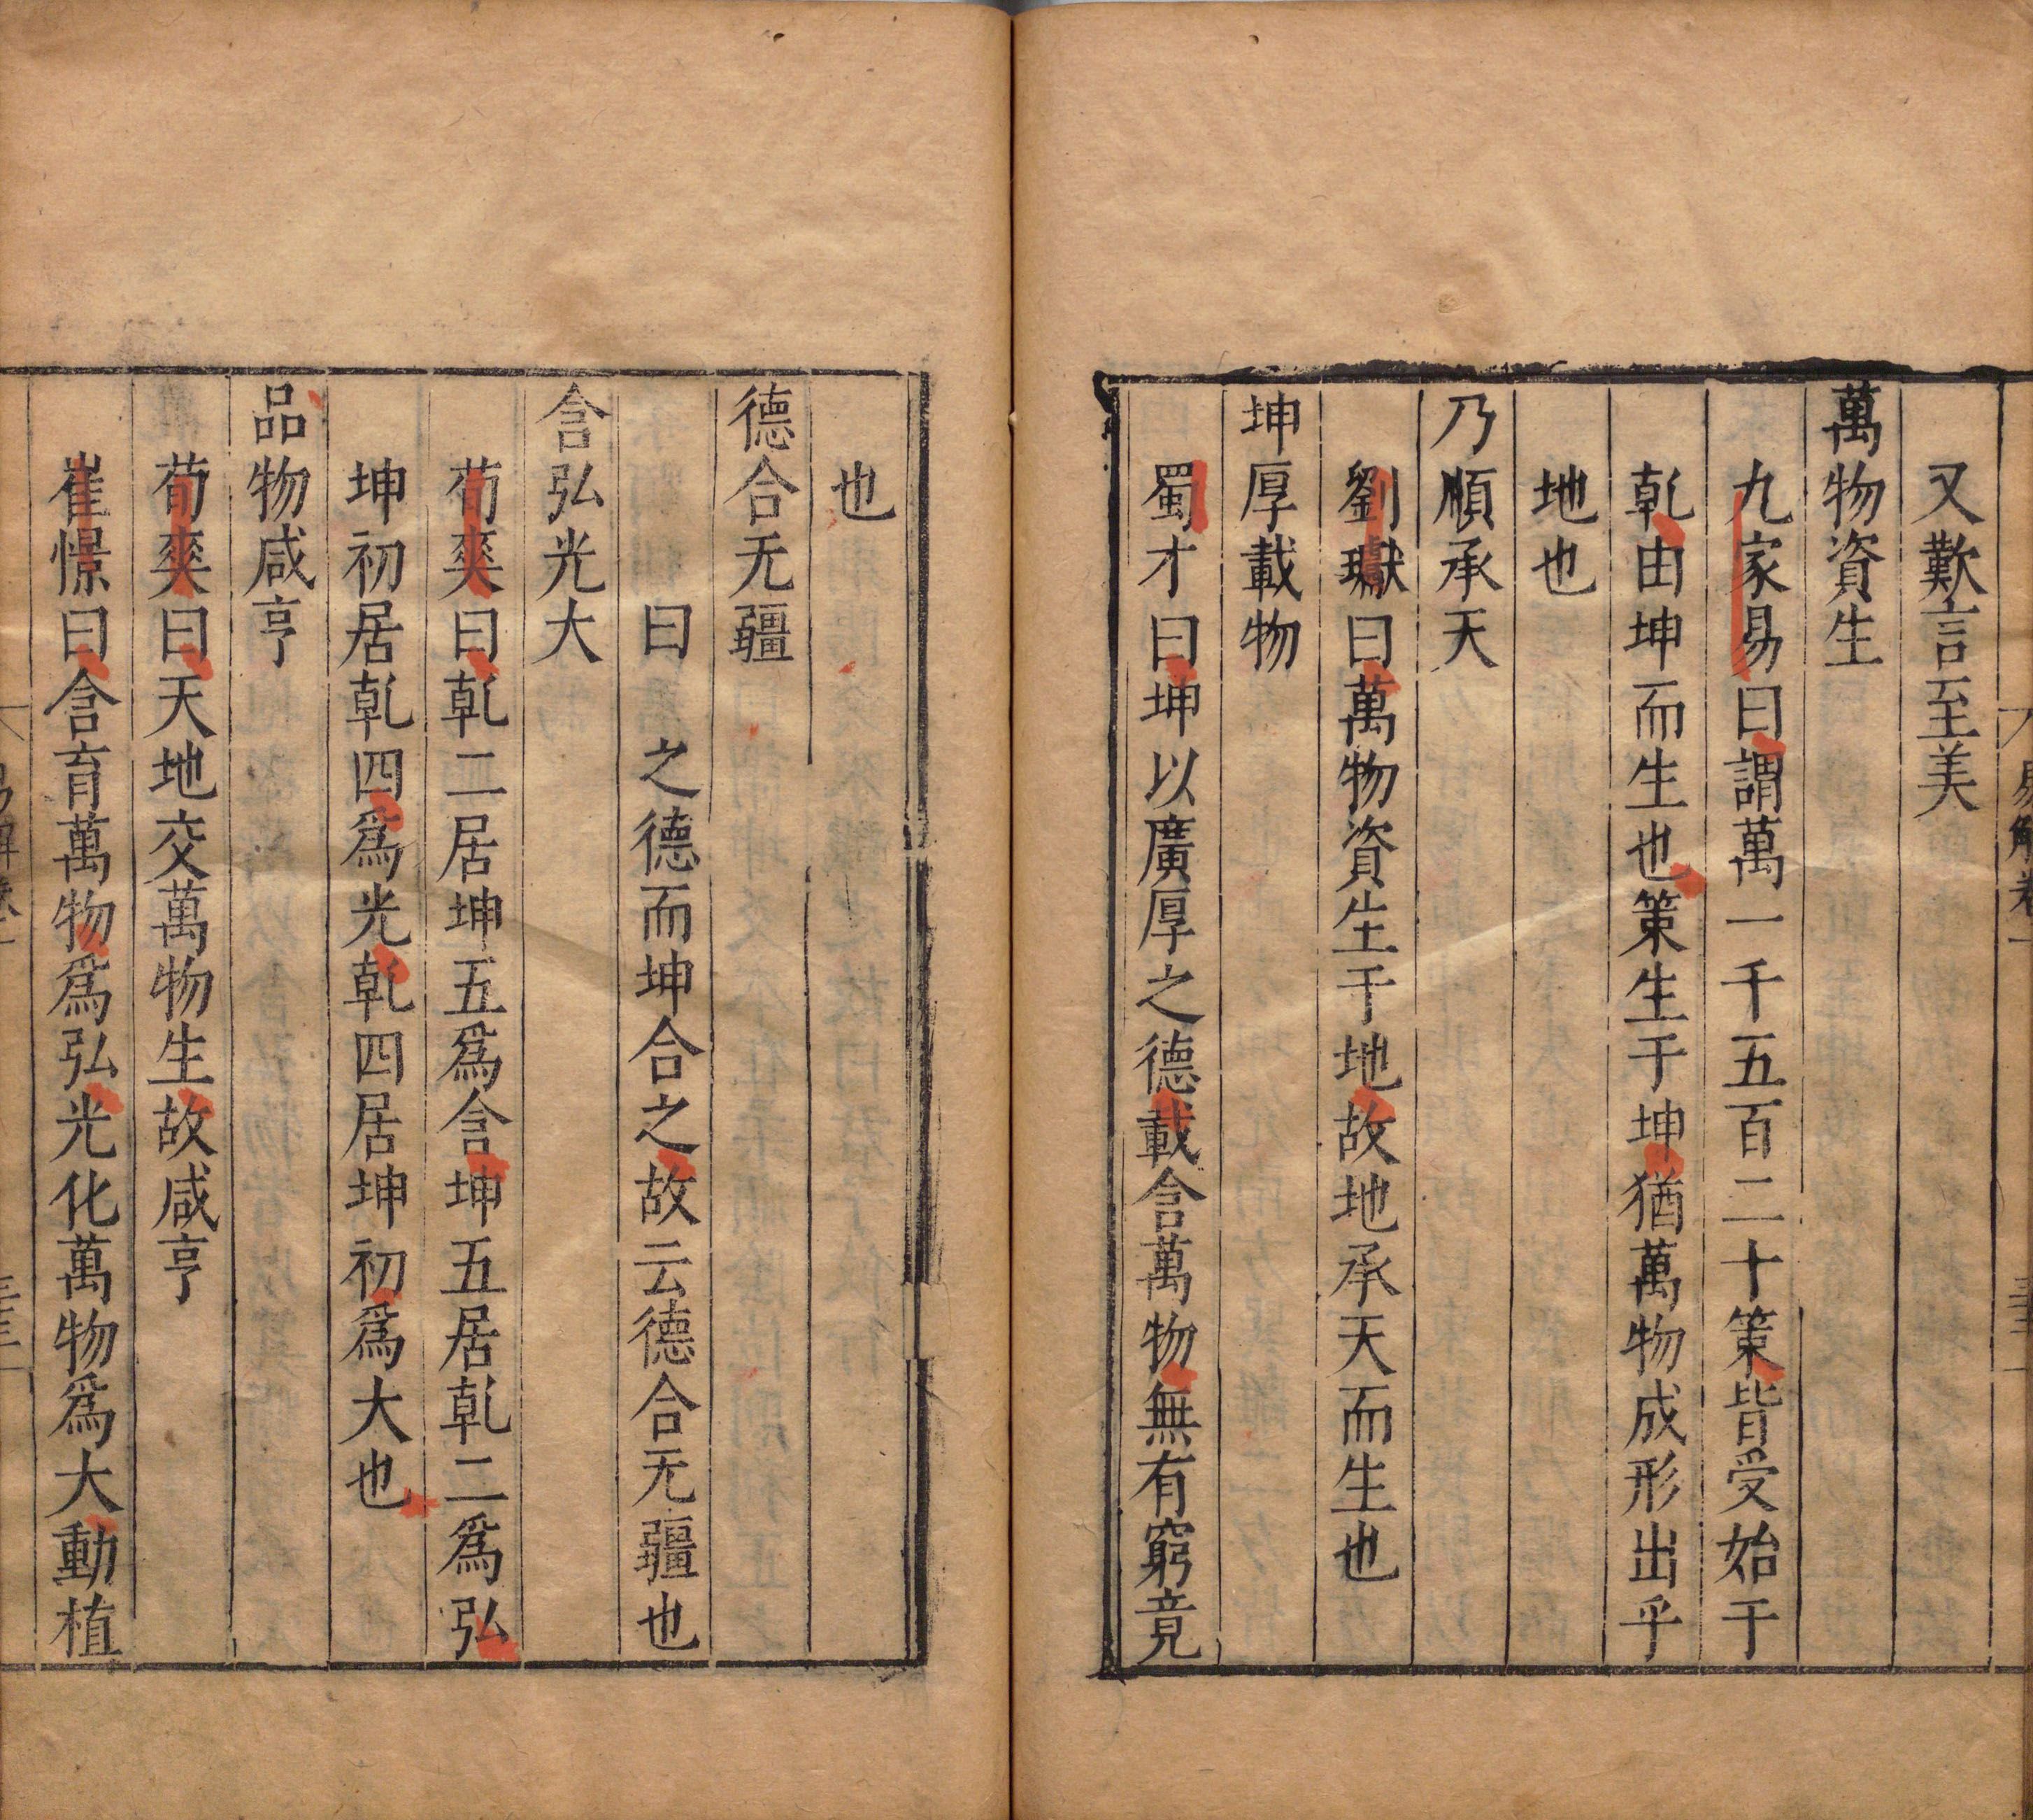 又歎言至美
萬物資生
九家易曰謂萬一千五百二十策皆受始于
乹由坤而生也策生于坤猶萬物成形出乎
地也
乃順承天
劉瓛曰萬物資生于地故地承天而生也
坤厚載物
蜀才曰坤以廣厚之德載含萬物無有窮竟
也
德合无疆
曰 之德而坤合之故云德合无疆也
含弘光大
荀爽曰乹二居坤五爲含坤五居乹二爲弘
坤初居乹四爲光乹四居坤初爲大也
品物咸亨
荀爽曰天地交萬物生故咸亨
崔憬曰含育萬物爲弘光化萬物爲大動植